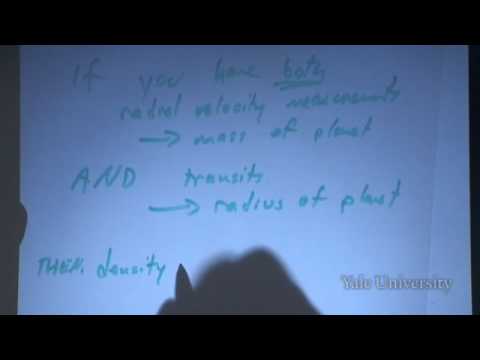 If you have both
radial velocity measurements
→ mass of planet
AND transits
→ radius of planet
THEN: density
Yale University